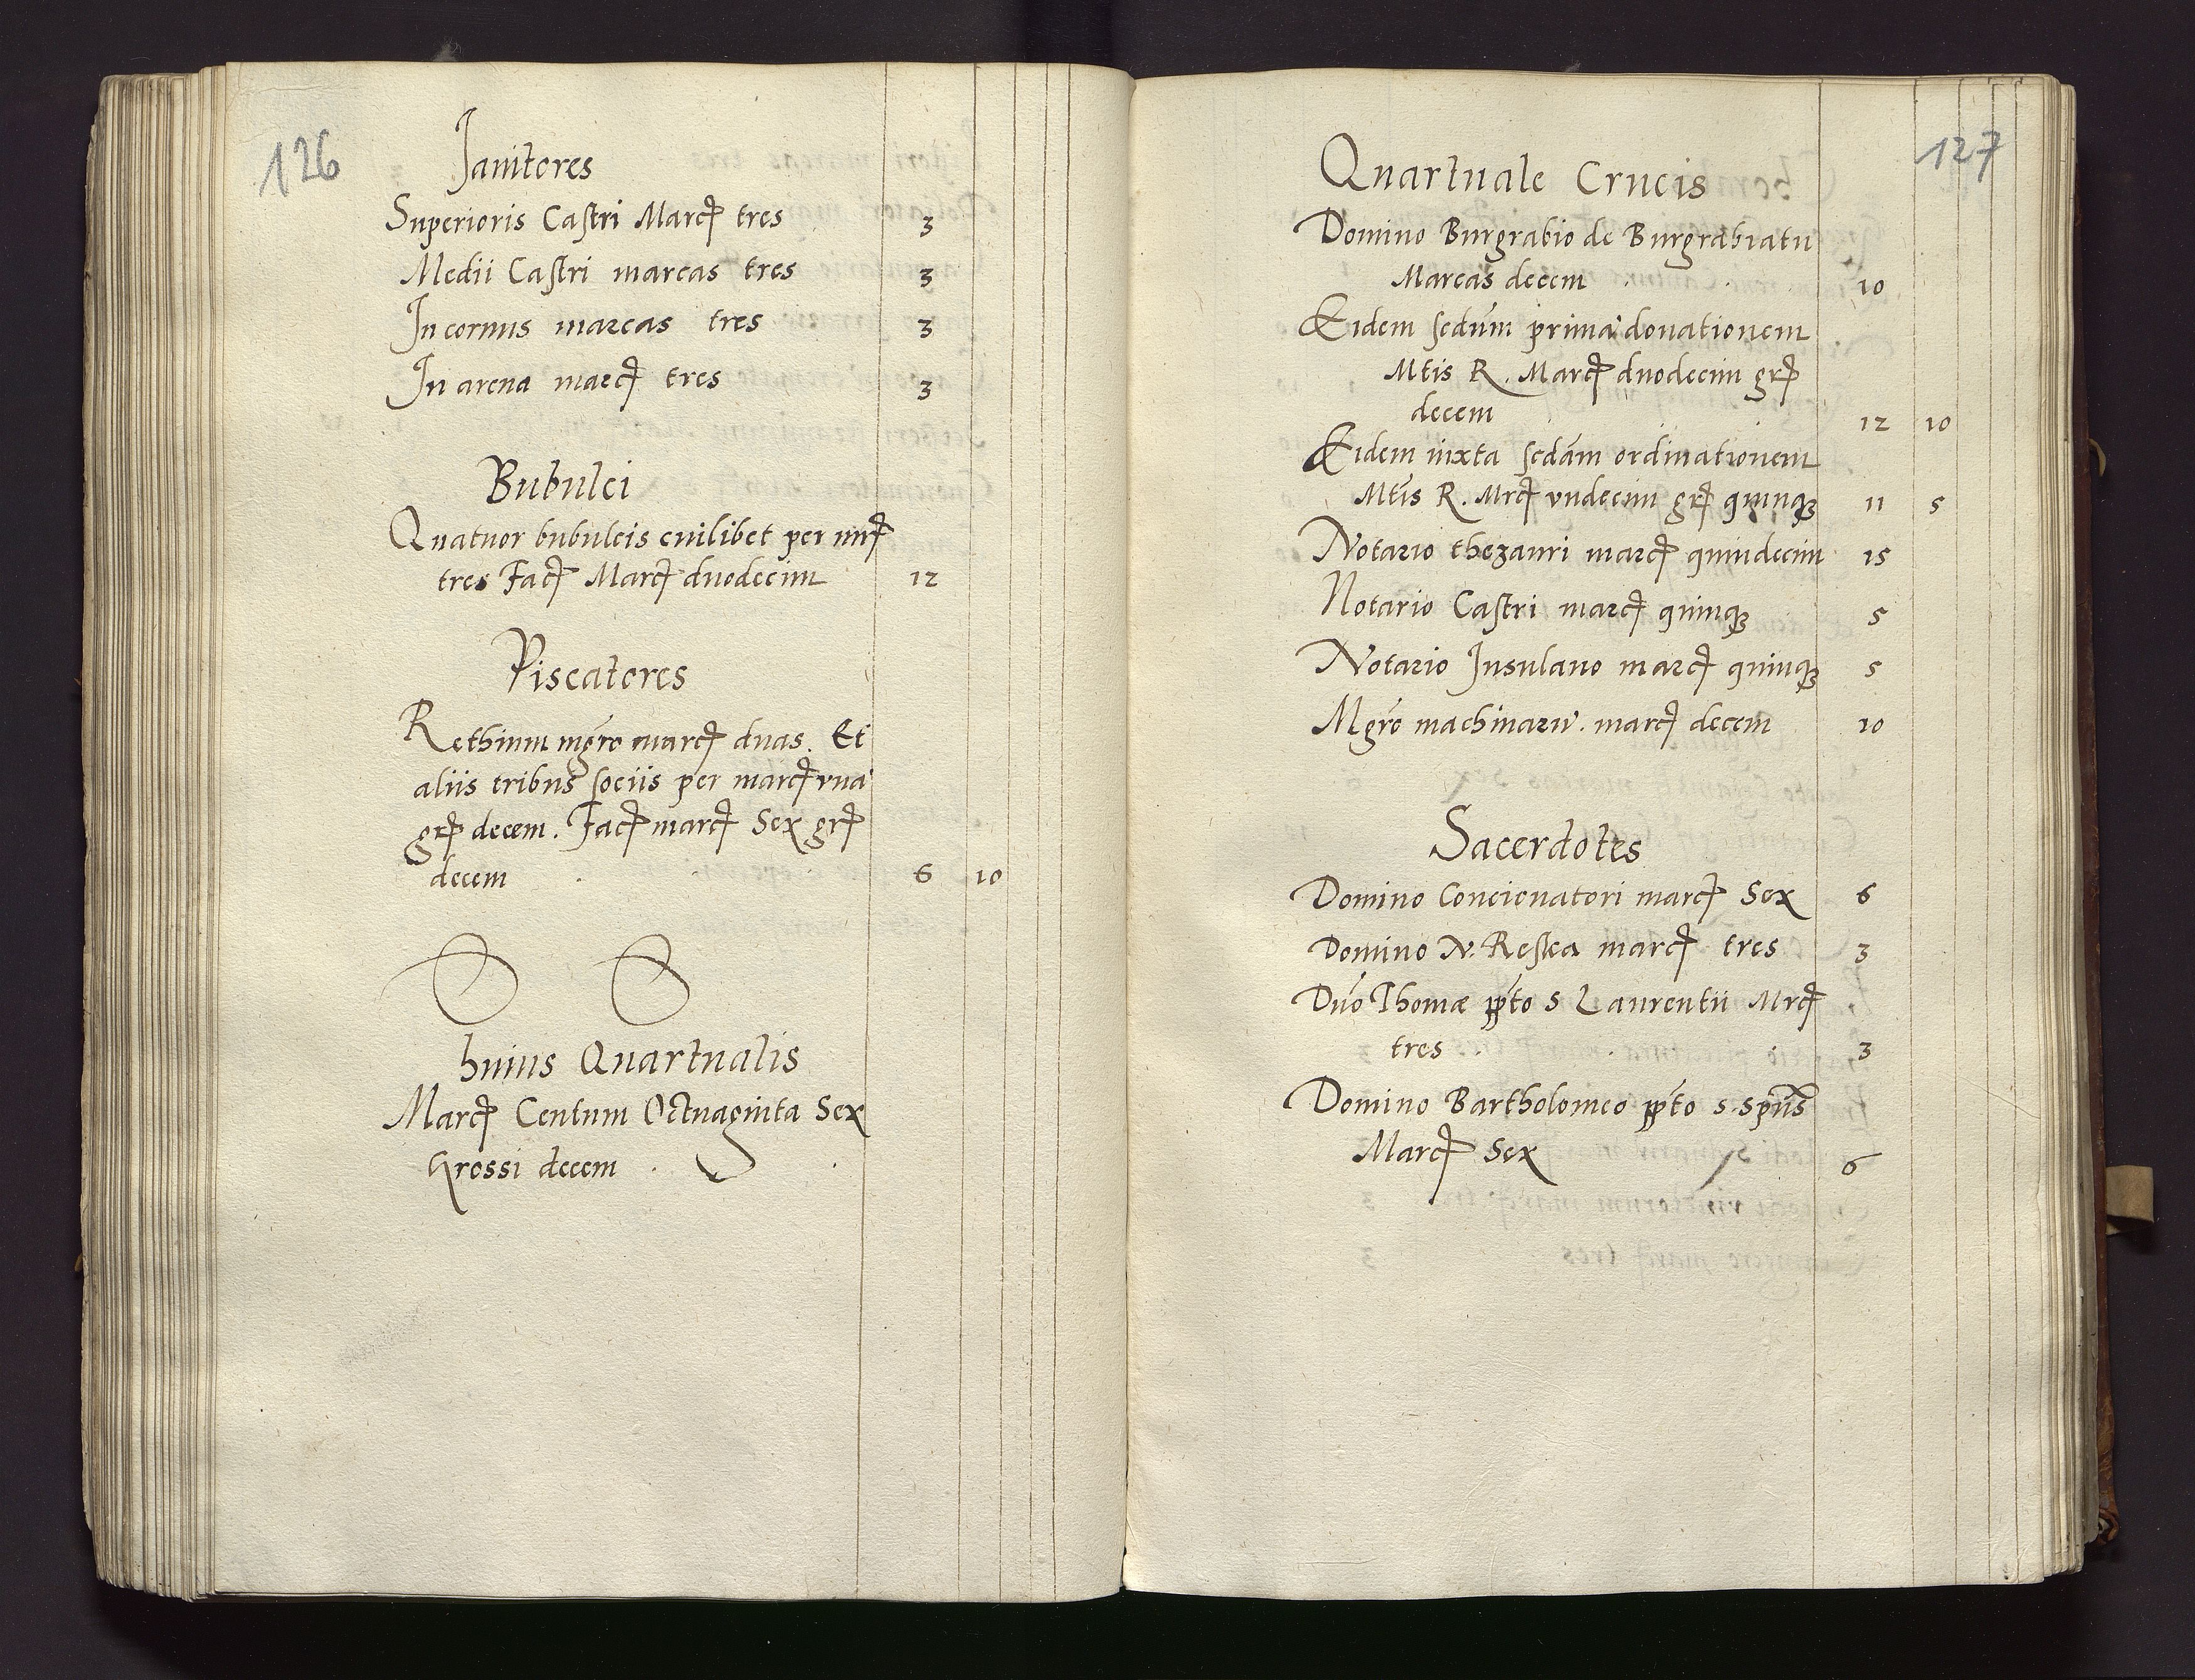 126
Janitores
Superioris Castri Marc. tres 3
Medii Castri marcas tres 3
In cornus marcas tres 3
In arena marc. tres 3
Bubulci
Quatuor bubulcis cuilibet per mrc.
tres Fac. Marc. duodecim 12
Piscatores
Rethium mgro marc. duas. Et
aliis tribus sociis per marc. una
gr. decem. Fac. marc. Sex gr.
decem 6 10
huius Quartualis
Marc. Centum Octuaginta Sex
Grossi decem
127
Quartuale Crucis
Domino Burgrabio de Burgrabiatu
Marcas decem 10
Eidem scdum prima donationem
Mtis R. Marc. duodecim gr.
decem 12 10
Eidem iuxta scdam ordinationem
Mtis R. Mrc. undecim gr. quinq3 11 5
Notario thezauri marc. quindecim 15
Notario Castri marc. quinq3 5
Notario Insulano marc. quinq3 5
Mgro machinaru. marc. decem 10
Sacerdotes
Domino Concionatori marc. Sex 6
Domino N. Reska marc. tres 3
Dno Thomæ ppto S Laurentii Mrc.
tres 3
Domino Bartholomeo ppto S. Spus
Marc. Sex 6